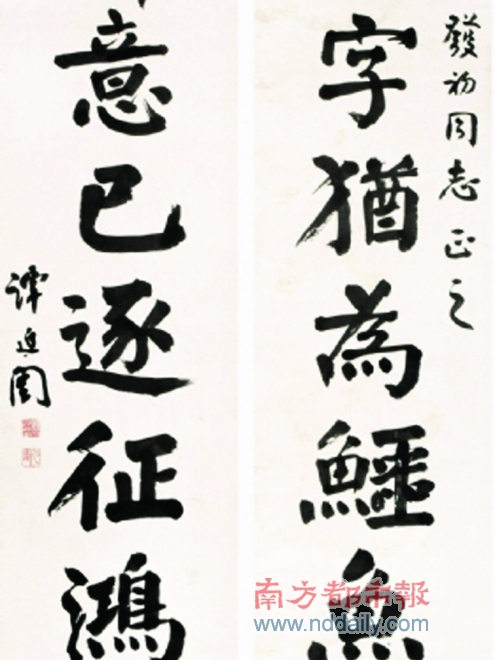 發初同志正之
字猶為鱷魚
意已逐征鴻
譚延闓
南方都市報
www.nddaily.com